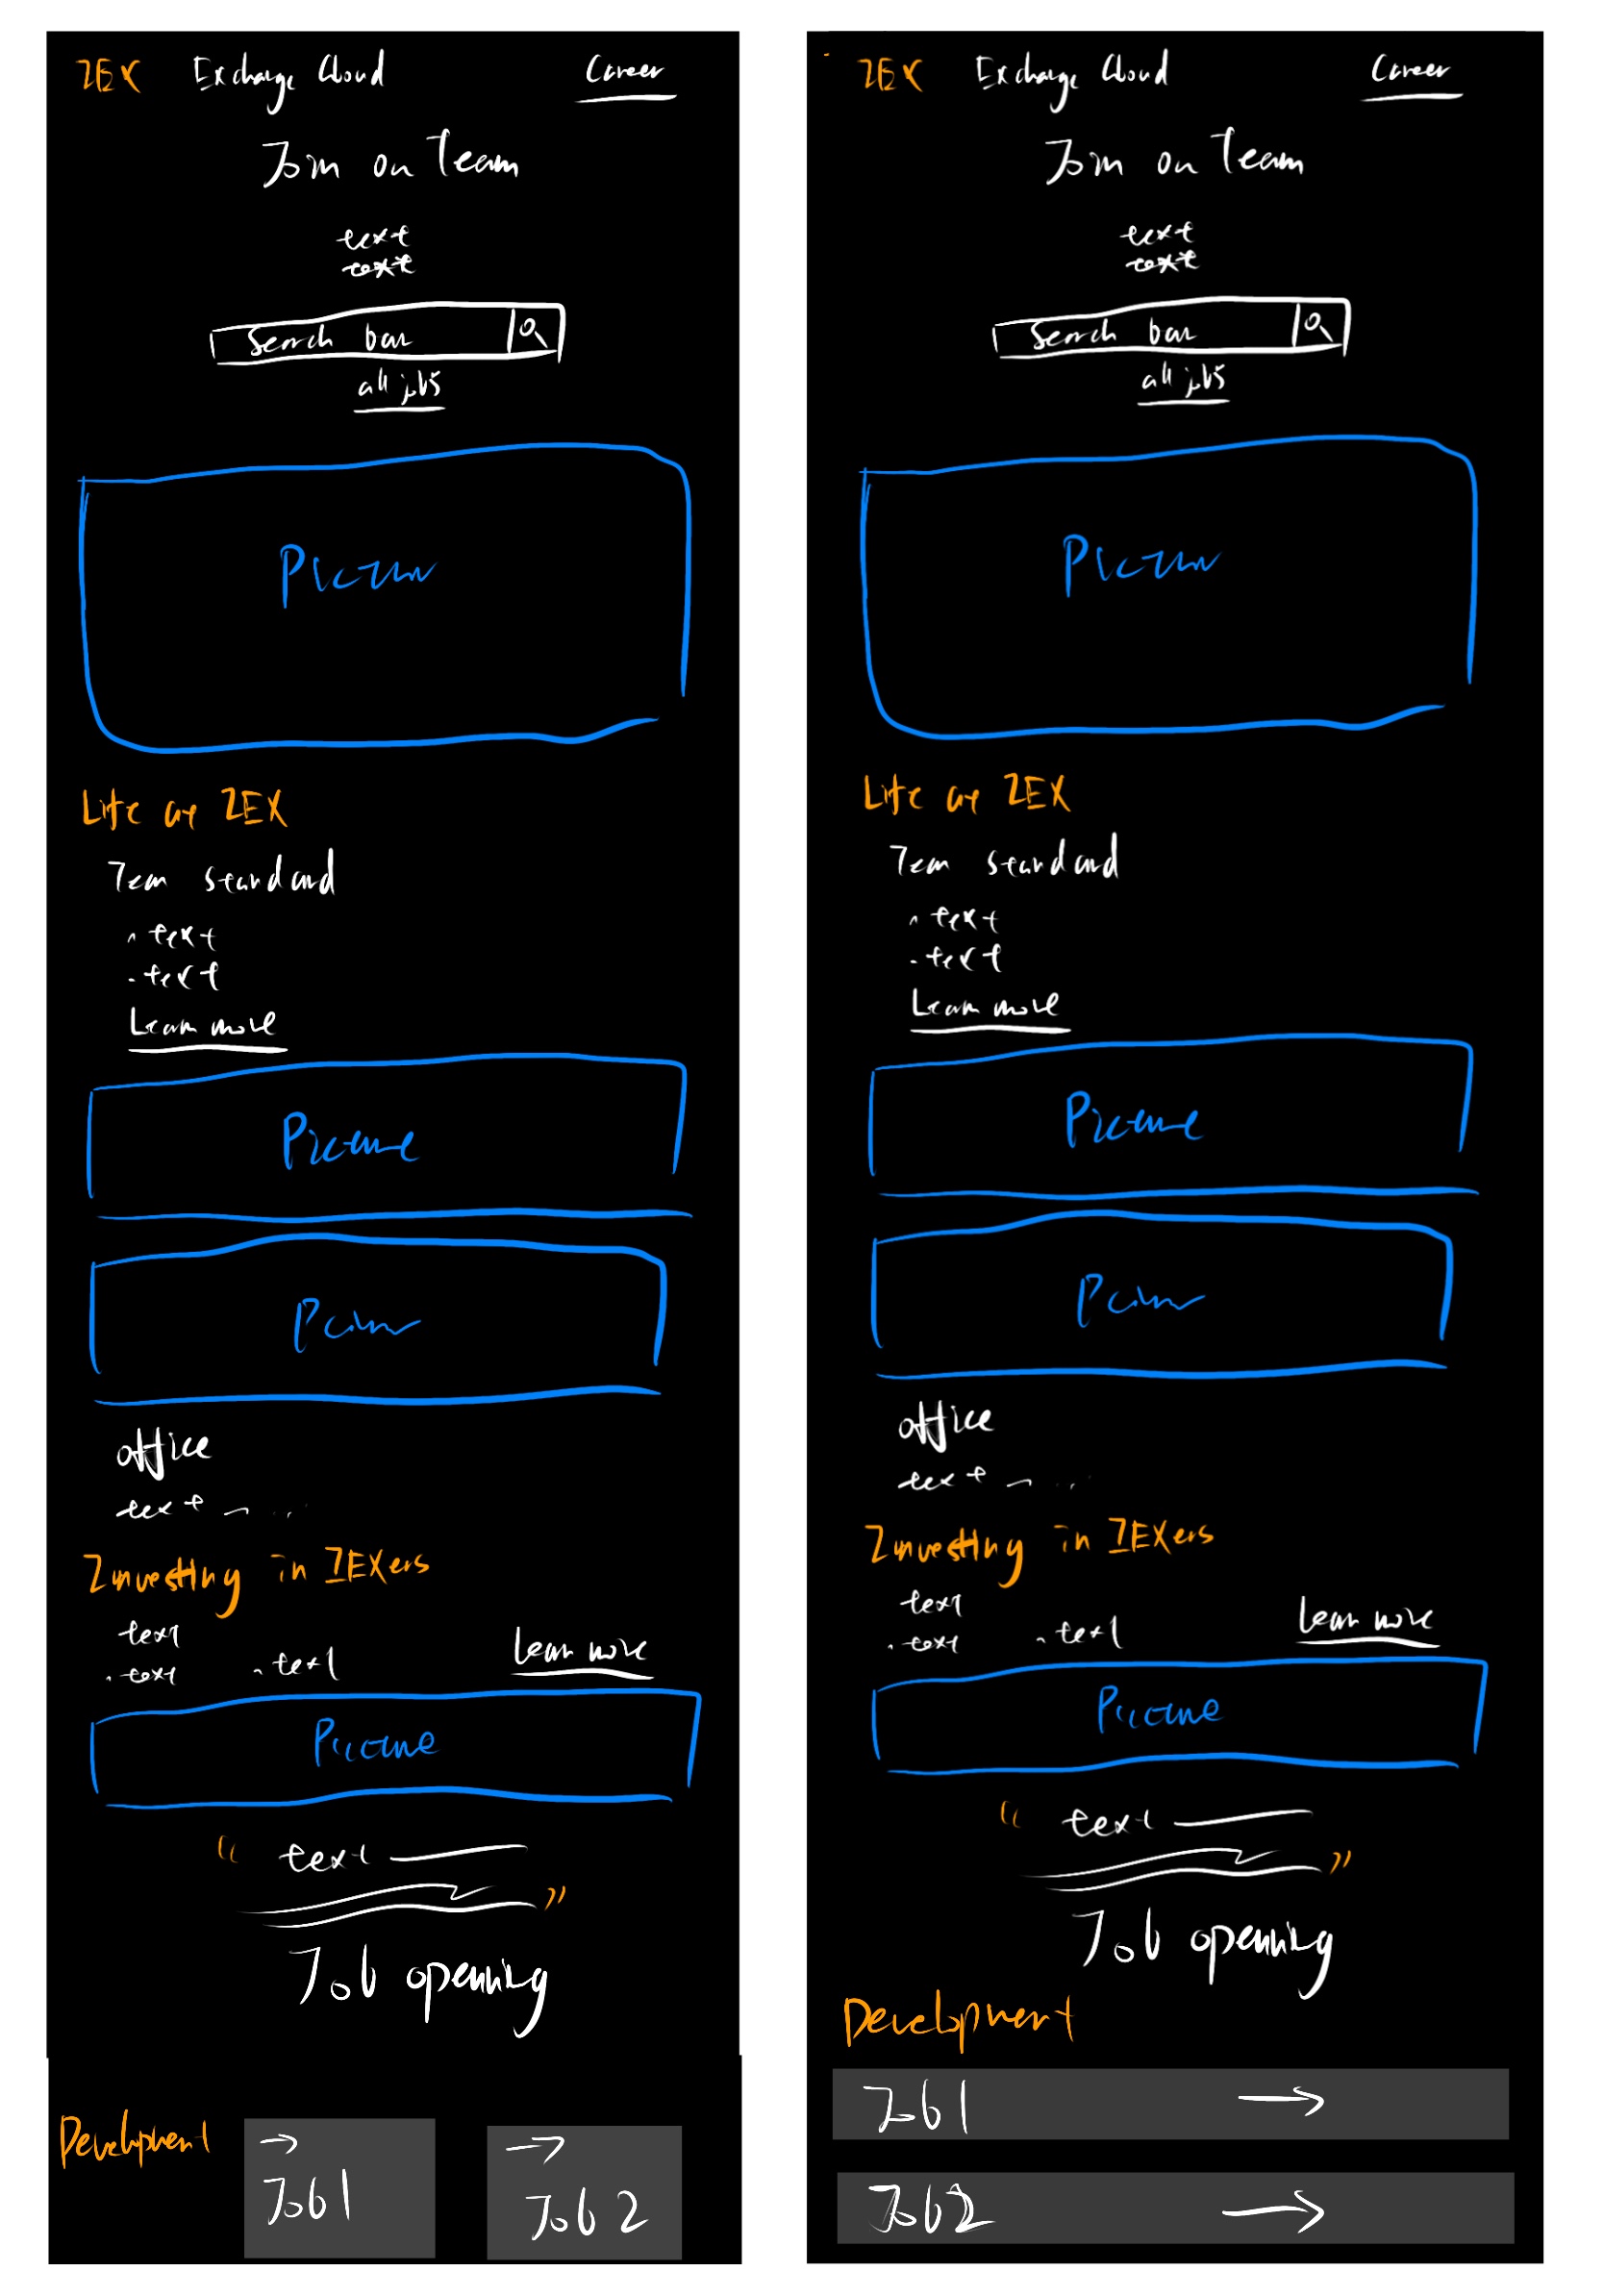 ZEX Exchange Cloud Career
Join our Team
text
text
Search bar
all jobs
Picture
Life at ZEX
Team standard
· text
· text
Learn more
Picture
Picture
office
text
Investing in ZEXers
text
· text · text Learn more
Picture
“ text
”
Job opening
Development
→ →
Job 1 Job 2
ZEX Exchange Cloud Career
Join our Team
text
text
Search bar
all jobs
Picture
Life at ZEX
Team standard
· text
· text
Learn more
Picture
Picture
office
text
Investing in ZEXers
text
· text · text Learn more
Picture
“ text
”
Job opening
Development
Job 1 →
Job 2 →